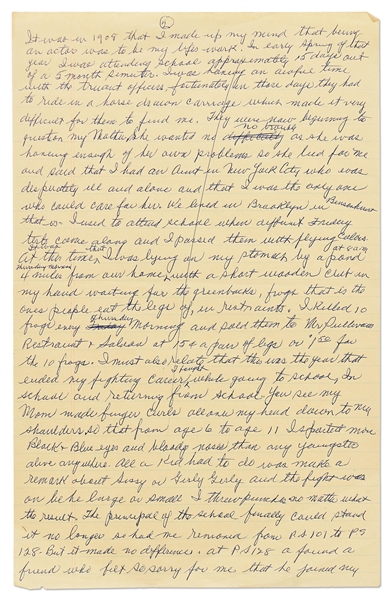 2
It was in 1908 that I made up my mind that being
an actor was to be my lifes work. In early Spring of that
year I was attending school approximately 15 days out
of a 5 month simister. I was having an awful time
with the truant officer, fortunately in those days they had
to ride in a horse drawn carriage which made it very
difficult for them to find me. They were now beginning to
question my Mother. She wanted no
no trouble
as she was
having enough of her own problems so she lied for me
and said that I had an Aunt in New York City who was
desperately ill and alone and that I was the only one
who could care for her. We lived in Brooklyn in Bensonhurst
that is - I used to attend school when different Friday
tests come along and I passed them with flying colors.
It was
that
at 4 am
At the times, I was lying on my stomach by a pond
Thursday
4 miles from our home, with a short wooden club in
my hand waiting for the greenbacks, frogs that is the
ones people eat the legs of, in restraints. I killed 10
Thursday
frogs every Morning and sold them to Mr Sullivans
Restraunt & Saloon at 15¢ a pair of legs or $1.50 for
the 10 frogs. I must also relate that this was the year that
I fought
ended my fighting career, while going to school, In
school and returning from school. You see my
Mom made finger curls all over my head down to my
shoulders so that from age 6 to age 11 I sported more
Black & Blue eyes and bloody noses than any youngster
alive anywhere. All a kid had to do was make a
remark about Sissy or Girly Girly and the fight was
on be he large or small I threw punches no matter what
the result. The principal of the school finally could stand
it no longer so had me removed from P.S 101 to PS
128. But it made no difference. at PS 128 I found a
friend who felt so sorry for me that he joined my